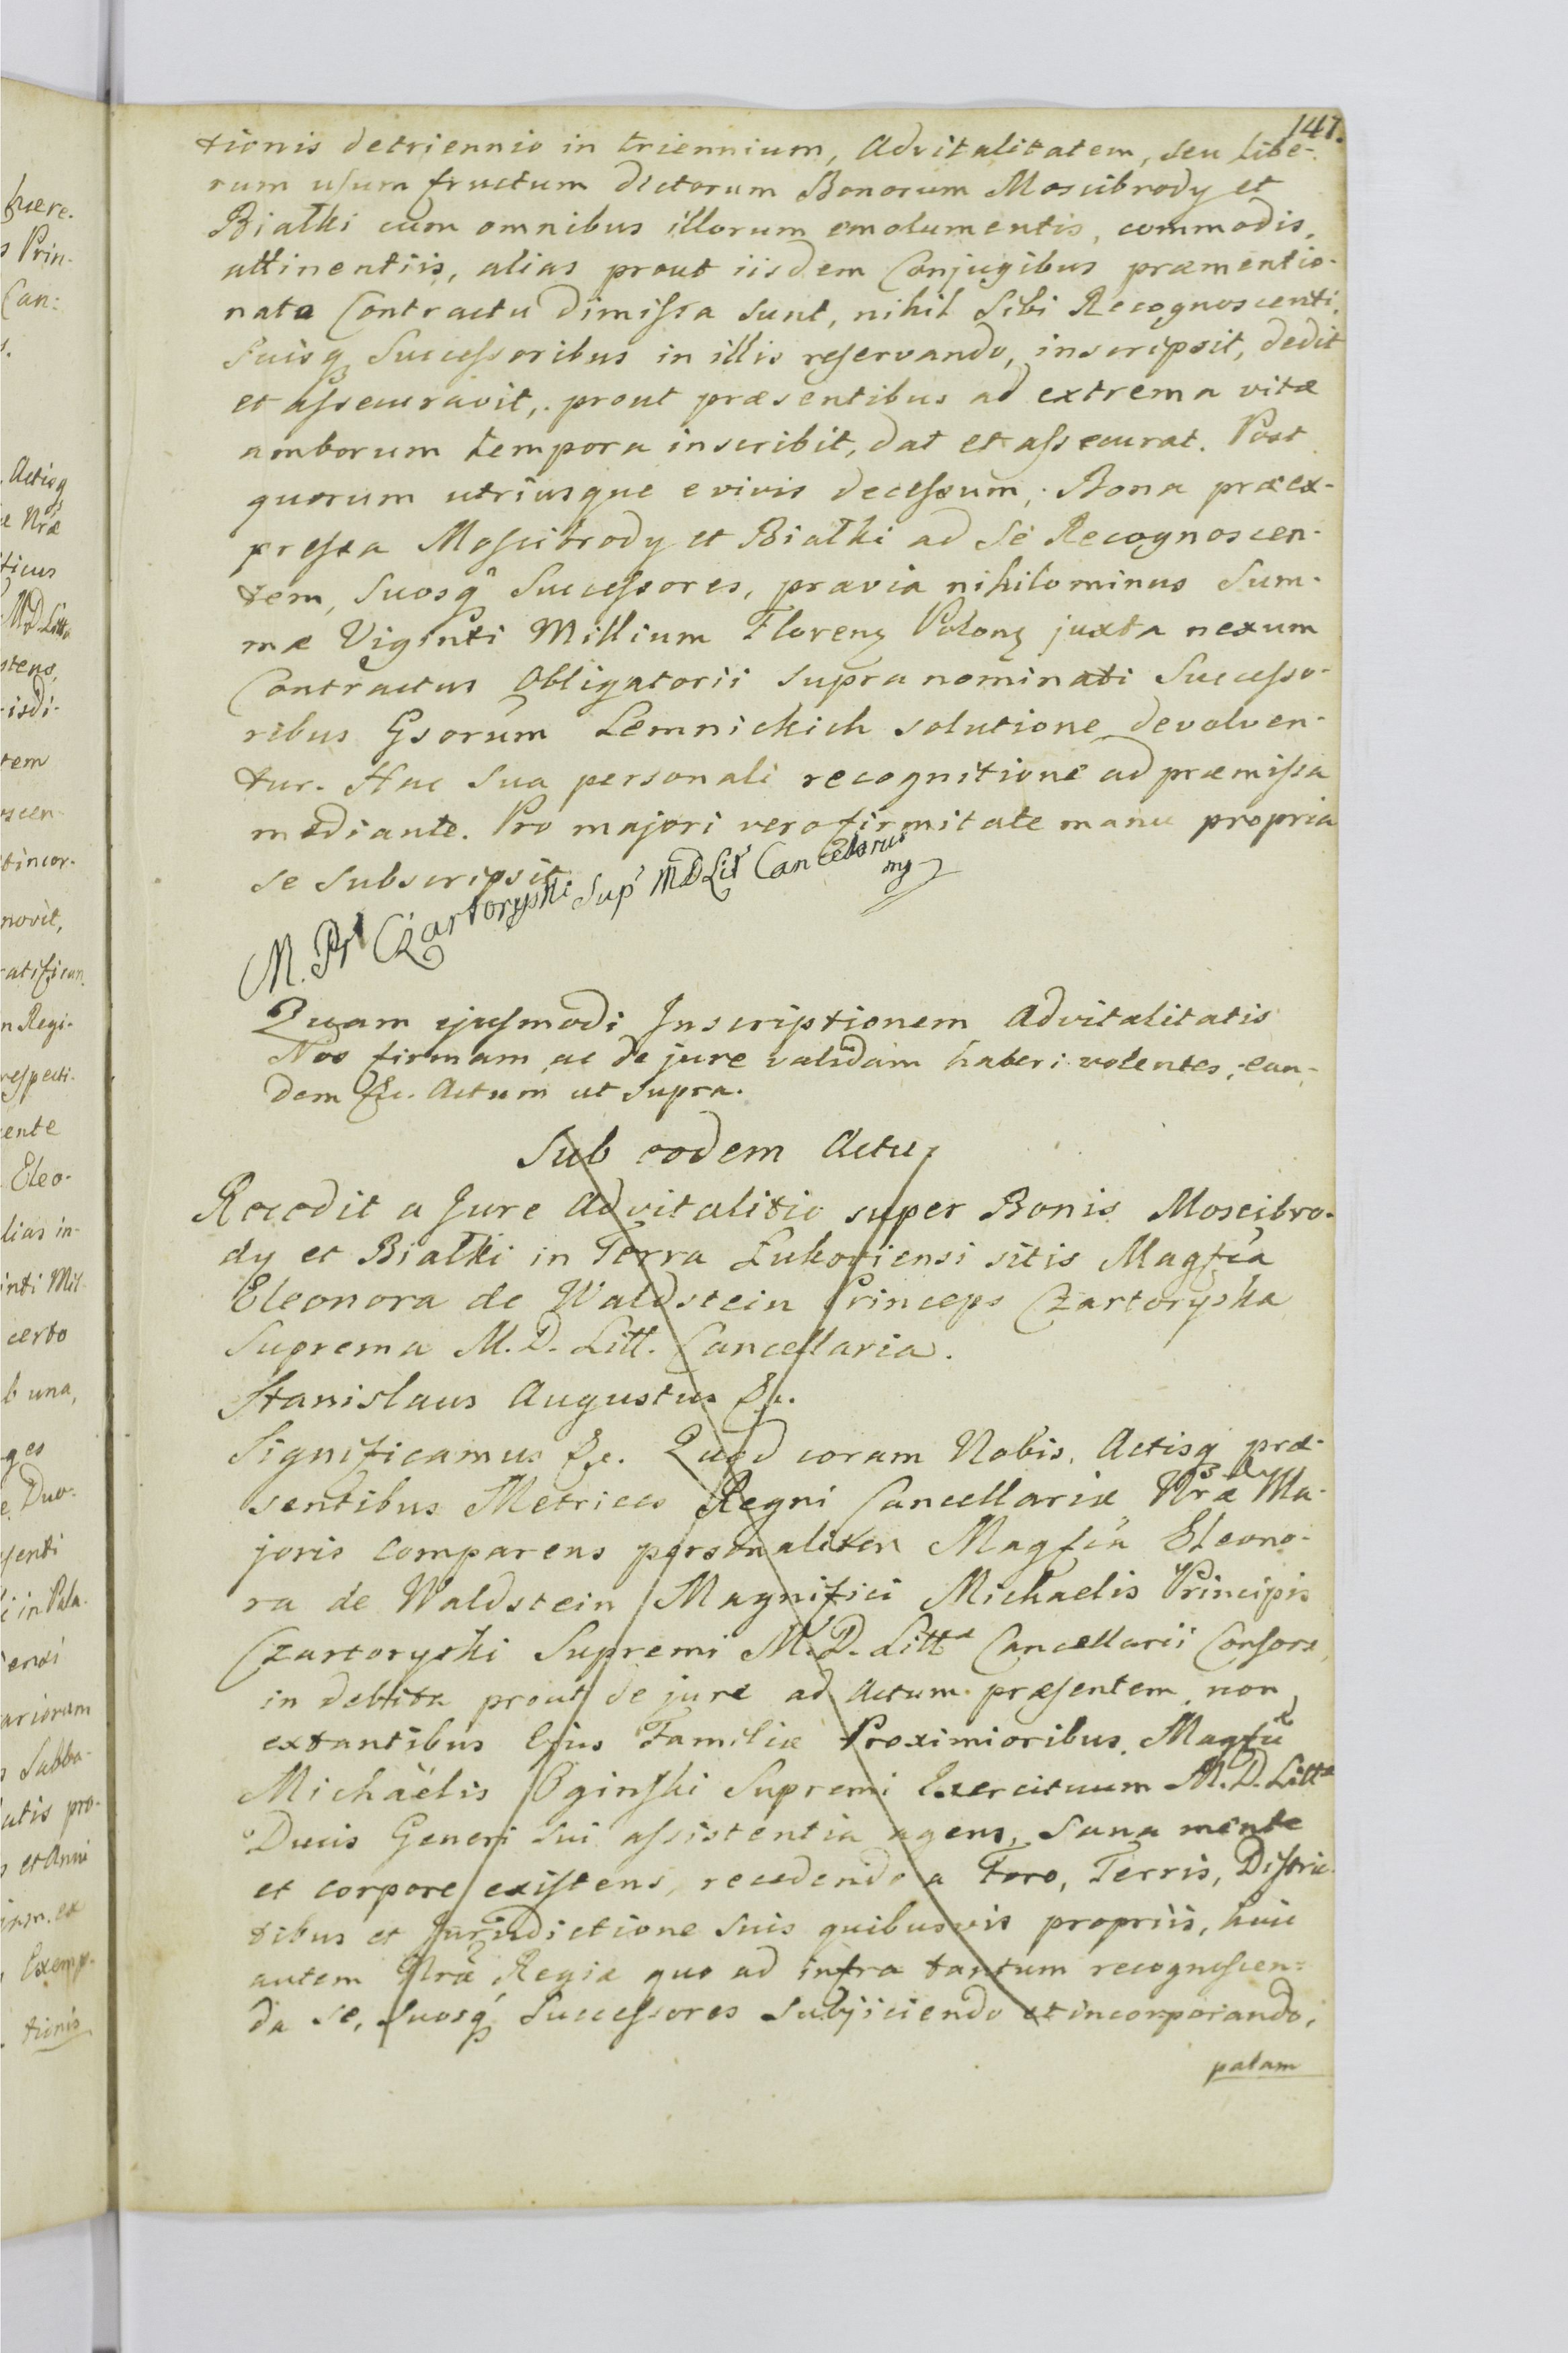 141.
tionis de triennio in triennium, Advitalitatem, seu libe-
rum usum fructum dictorum Bonorum Moscibrody et
Białki cum omnibus illorum emolumentis, commodis,
attinentiis, alias prout iisdem Conjugibus præmentio-
nato Contractu dimissa sunt, nihil Sibi Recognoscenti,
Suisq Successoribus in illis reservando, inscripsit, dedit
et assecuravit, prout præsentibus ad extrema vitæ
amborum tempora inscribit, dat et assecurat. Post
quorum utriusque e vivis decessum, Bona præex-
pressa Moscibrody et Białki ad Se Recognoscen-
tem, Suosq Successores, prævia nihilominus Sum-
mæ Viginti Millium Floren Polon juxta nexum
Contractus Obligatorii supra nominati Successo-
ribus Gsorum Lemnickich solutione devolven-
tur. Hac Sua personali recognitione ad præmissa
mediante. Pro majori vero firmitate manu propria
se Subscripsit.
M. Pr Czartoryski Sup MDLit Cancellarius
mp
Quam ejusmodi Inscriptionem Advitalitatis
Nos firmam ac de jure validam haberi volentes, ean-
dem &c. Actum ut supra.
Sub eodem Actu,
Recedit a Jure Advitalitio super Bonis Moscibro-
dy et Białki in Terra Lukoviensi sitis Magfca
Eleonora de Waldstein Princeps Czartoryska
Suprema M. D. Litt. Cancellaria.
Stanislaus Augustus &c.
Significamus &c. Quod coram Nobis, Actisq præ-
sentibus Metrices Regni Cancellariæ Nræ Ma-
joris comparens personaliter Magfca Eleono-
ra de Waldstein Magnifici Michaelis Principis
Czartoryski Supremi M. D. Litt Cancellarii Consors,
in debita prout de jure ad Actum præsentem, non
extantibus Ejus Familiæ Proximioribus, Magfci
Michaëlis Oginski Supremi Exercituum M. D. Litt
Ducis Generi Sui assistentia agens, Sana mente
et corpore existens, recedendo a Foro, Terris, Distric-
tibus et Jurisdictione Suis quibusvis propriis, huic
autem Nræ Regiæ quo ad infra tantum recognoscen-
da se, Suosq Successores Subjiciendo et incorporando,
palam